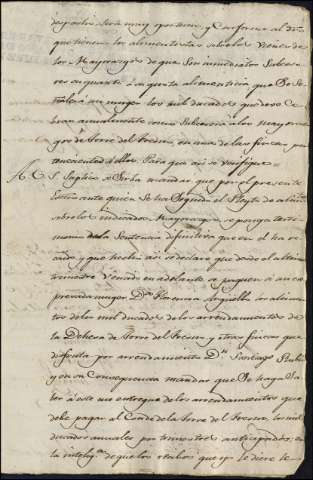 deposito, sera muy oportuno, y conforme al dro
que tienen los alimentistas sobre los vienes de
los Mayorazgos de que son inmediatos subceso
res en quanto a la quota alimenticia que se se
ñalo a mi muger los mil ducados que deve co
brar anualmente como subcesora a los mayoraz
gos de torre del fresno, en una de las fincas per
tenecientes a ellos. Para que asi se verifique =
A V.S. Suplico se sirba mandar que por el presente
Escribano ante quien se ha seguido el Pleyto de alimtos
sobre los indicados Mayorazgos se ponga testi
monio de la Sentencia difinitiva que en el ha re
caido y que hecho asi se declare que desde el ultimo
trimestre venido en adelante se paguen a mi ex
presada muger Da Florencia Arguello los alimen
tos de los mil ducados de los arrendamientos de
la Dehesa de torre del fresno y otras fincas que
disfruta por arrendamiento Dn Santiago
y en su consequencia mandar que se haga sa
ber a este no entregue de los arrendamientos que
debe pagar al Conde de la torre del fresno, los mil
ducados anuales por trimestres anticipados, en
la intelига de que los recibos que yo le diere le